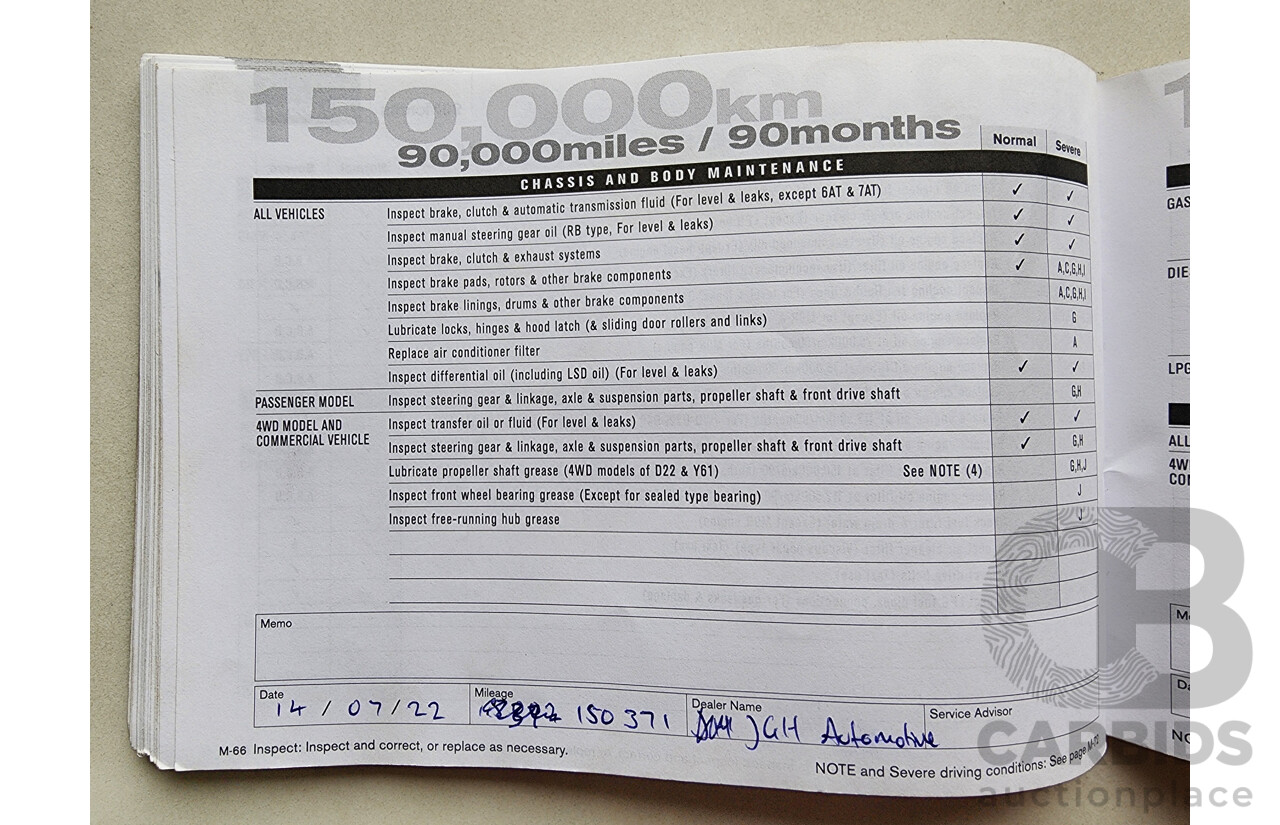 150,000km
90,000miles / 90months
Normal Severe
CHASSIS AND BODY MAINTENANCE
ALL VEHICLES Inspect brake, clutch & automatic transmission fluid (For level & leaks, except 6AT & 7AT) ✓ ✓
Inspect manual steering gear oil (RB type, For level & leaks) ✓ ✓
Inspect brake, clutch & exhaust systems ✓ ✓
Inspect brake pads, rotors & other brake components ✓ A,C,G,H,I
Inspect brake linings, drums & other brake components A,C,G,H,I
Lubricate locks, hinges & hood latch (& sliding door rollers and links) G
Replace air conditioner filter A
Inspect differential oil (including LSD oil) (For level & leaks) ✓ ✓
PASSENGER MODEL Inspect steering gear & linkage, axle & suspension parts, propeller shaft & front drive shaft G,H
4WD MODEL AND Inspect transfer oil or fluid (For level & leaks) ✓ ✓
COMMERCIAL VEHICLE Inspect steering gear & linkage, axle & suspension parts, propeller shaft & front drive shaft ✓ G,H
Lubricate propeller shaft grease (4WD models of D22 & Y61) See NOTE (4) G,H,J
Inspect front wheel bearing grease (Except for sealed type bearing) J
Inspect free-running hub grease J
Memo
Date Mileage Dealer Name Service Advisor
14 / 07 / 22 150 371 JGH Automotive
M-66 Inspect: Inspect and correct, or replace as necessary.
NOTE and Severe driving conditions: See page M-72
1
GAS
DIE
LPG
ALL
4W
CO
M
Da
NO
CB
CARBIDS
auctionplace